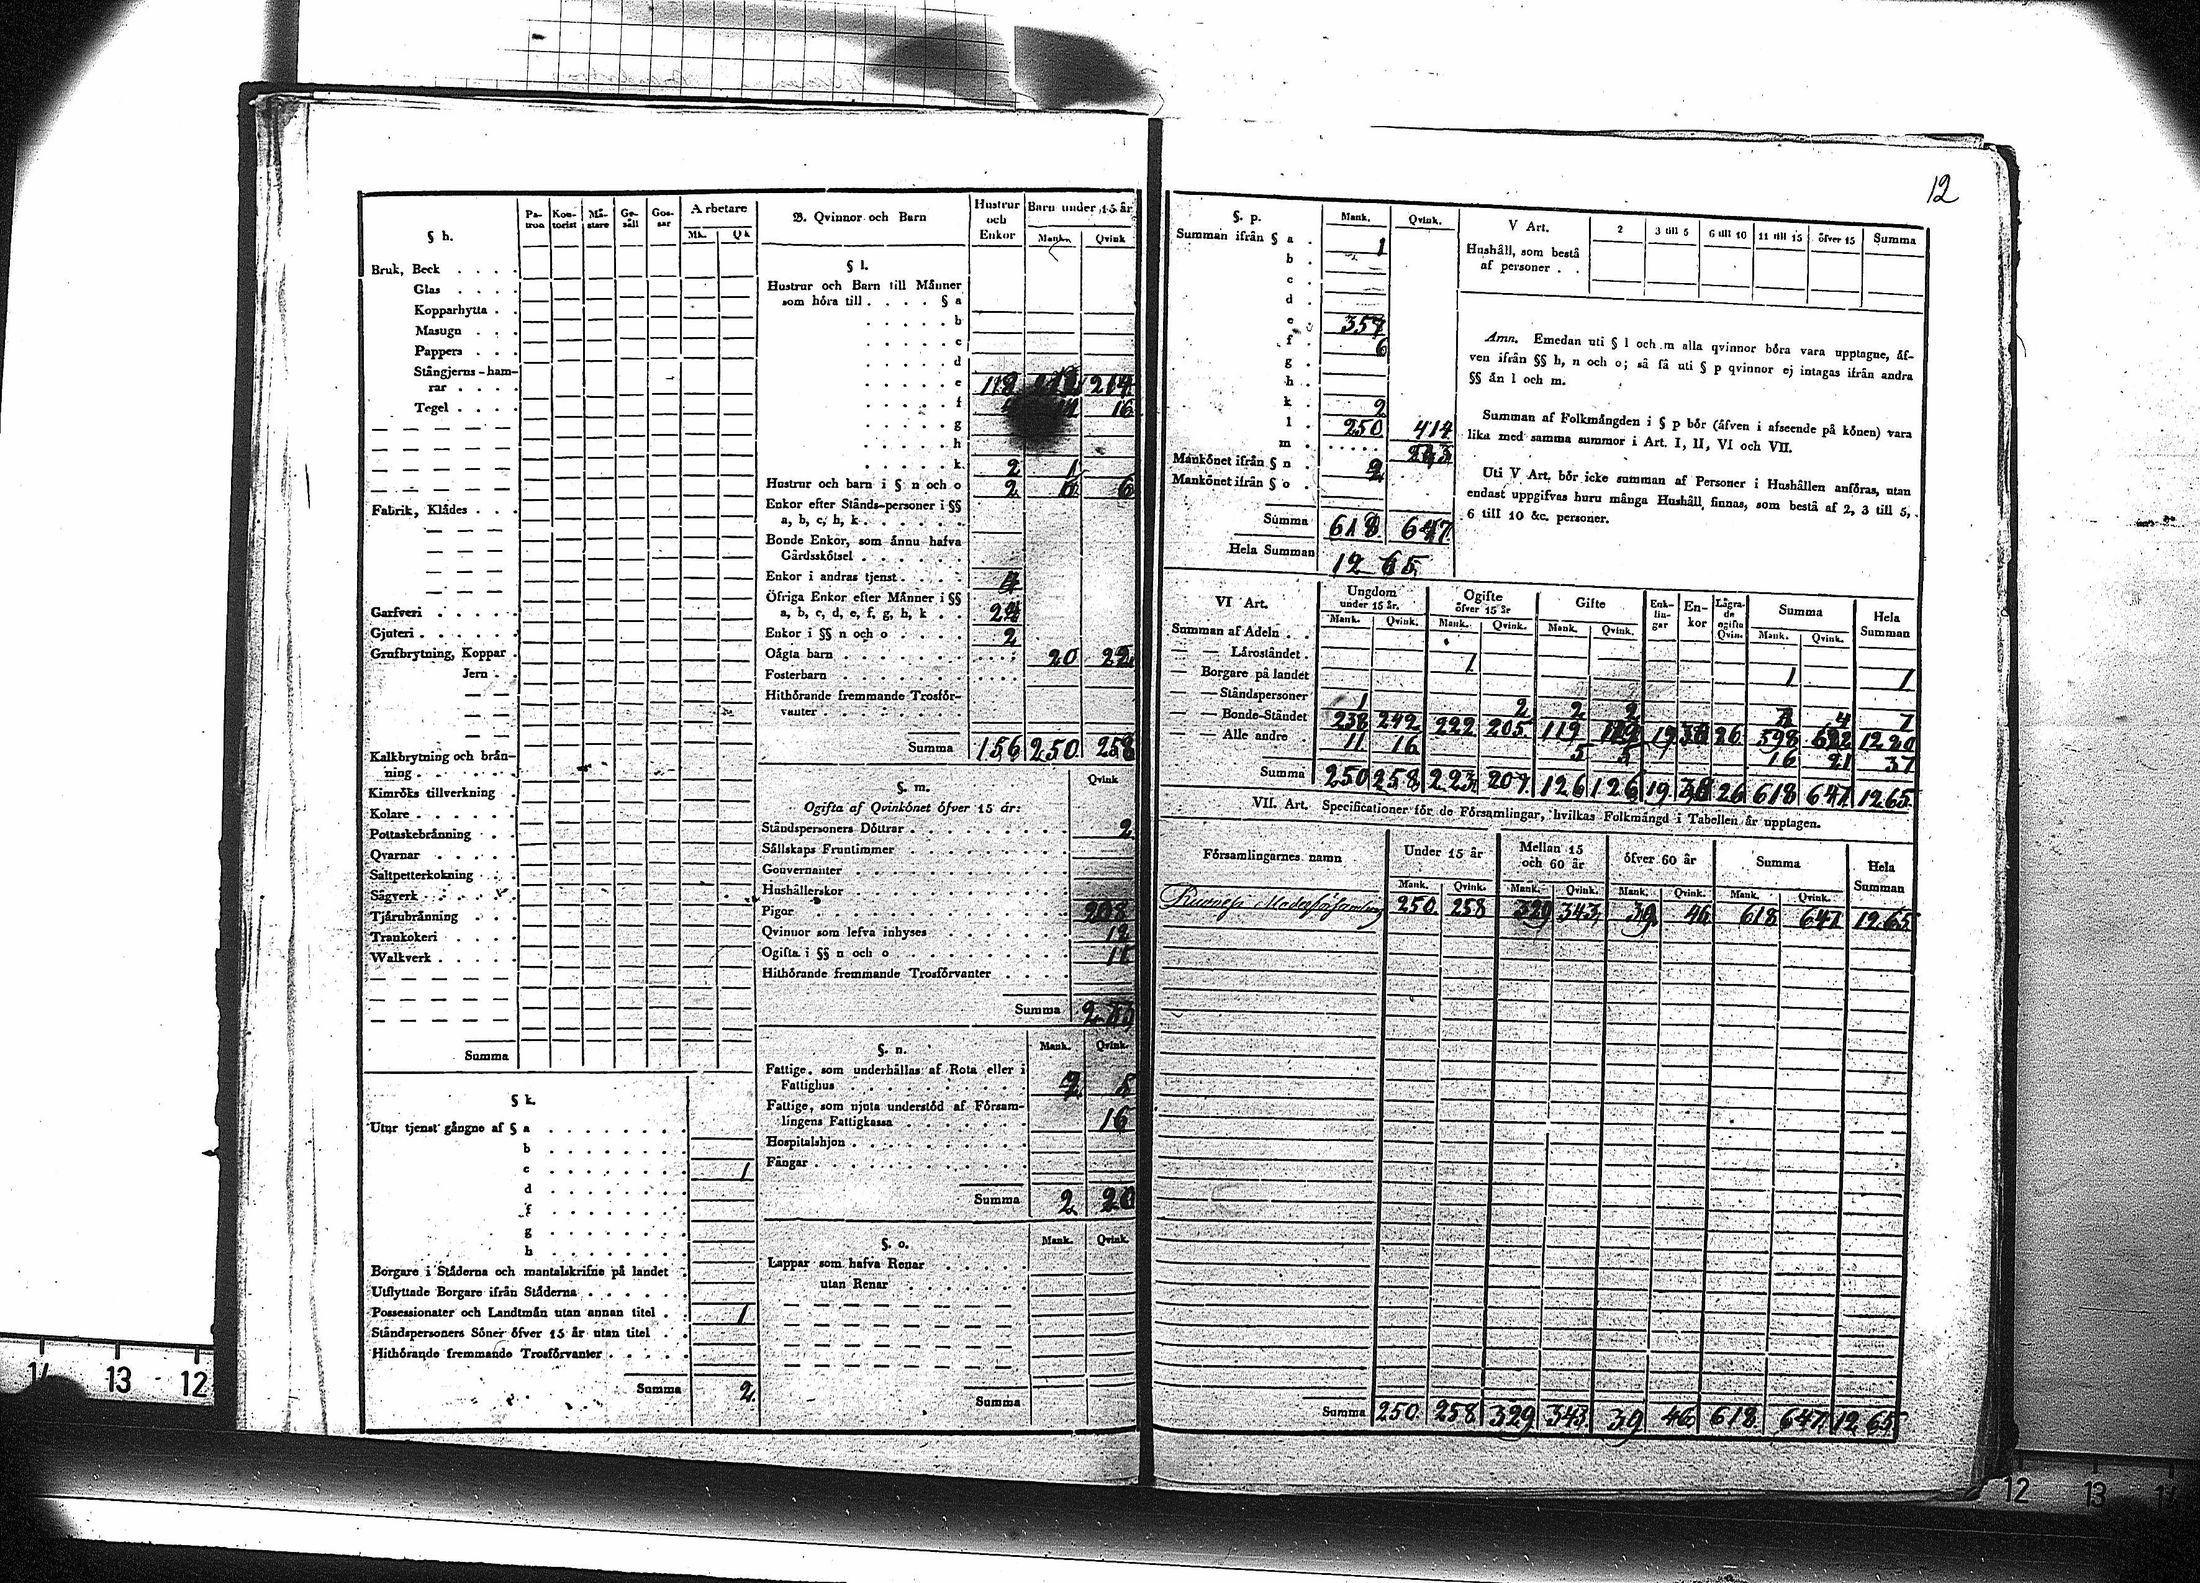 12
§ h.
Pa-tron Kon-torist Mä-stare Ge-säll Gos-sar Arbetare
Mk. Qk
Bruk, Beck
Glas
Kopparhytta
Masugn
Pappers
Stångjerns-ham-
rar
Tegel
Fabrik, Klådes
Garfveri
Gjuteri
Grufbrytning, Koppar
Jern
Kalkbrytning och brån-
ning
Kimröks tillverkning
Kolare
Pottaskebränning
Qvarnar
Saltpetterkokning
Sågverk
Tjärubränning
Trankokeri
Walkverk
Summa
§ k.
Utur tjenst gångne af § a
b
c 1
d
f
g
h
Borgare i Städerna och mantalskrifne på landet
Utflyttade Borgare ifrån Städerna
Possessionater och Landtmän utan annan titel 1
Ståndspersoners Söner öfver 15 år utan titel
Hithörande fremmande Trosförvanter
Summa 2
B. Qvinnor och Barn
Hustrur och Enkor Barn under 15 år
Mank. Qvink
§ l.
Hustrur och Barn till Männer
som höra till § a
b
c
d
e 112 214
f 16
g
h
k 2 1
Hustrur och barn i § n och o 2 6
Enkor efter Stånds-personer i §§
a, b, c, h, k
Bonde Enkor, som ännu hafva
Gårdsskötsel
Enkor i andras tjenst 4
Öfriga Enkor efter Männer i §§
a, b, c, d, e, f, g, h, k 24
Enkor i §§ n och o 2
Oägta barn 20 22
Fosterbarn
Hithörande fremmande Trosför-
vanter
Summa 156 250 258
§. m. Qvink
Ogifta af Qvinkönet öfver 15 år:
Ståndspersoners Döttrar 2
Sällskaps Fruntimmer
Gouvernanter
Hushållerskor
Pigor 208
Qvinnor som lefva inhyses 12
Ogifta i §§ n och o 11
Hithörande fremmande Trosförvanter
Summa
§. n. Mank. Qvink.
Fattige, som underhållas af Rota eller i
Fattighus 2
Fattige, som njuta understöd af Försam-
lingens Fattigkassa 16
Hospitalshjon
Fångar
Summa 2 20
§. o. Mank. Qvink.
Lappar som hafva Renar
utan Renar
Summa
§. p. Mank. Qvink.
Summan ifrån § a 1
b
c
d
e 357
f 6
g
h
k 2
l 250 414
m
Mankönet ifrån § n 2
Mankönet ifrån § o
Summa 618 647
Hela Summan 1265
V Art. 2 3 till 5 6 till 10 11 till 15 öfver 15 Summa
Hushåll, som bestå
af personer
Amn. Emedan uti § l och m alla qvinnor böra vara upptagne, äf-
ven ifrån §§ h, n och o; så få uti § p qvinnor ej intagas ifrån andra
§§ än l och m.
Summan af Folkmängden i § p bör (äfven i afseende på könen) vara
lika med samma summor i Art. I, II, VI och VII.
Uti V Art. bör icke summan af Personer i Hushållen anföras, utan
endast uppgifvas huru många Hushåll finnas, som bestå af 2, 3 till 5,
6 till 10 &c. personer.
VI Art. Ungdom under 15 år. Ogifte öfver 15 år Gifte Enk-lin-gar En-kor Lägra-de ogifta Qvin. Summa Hela Summan
Mank. Qvink. Mank. Qvink. Mank. Qvink. Mank. Qvink.
Summan af Adeln
— — Lärostándet 1 1 1
— Borgare på landet
— — Ståndspersoner 1 2 2 2 4 7
— — Bonde-Ståndet 238 242 222 205 119 119 19 38 26 598 622 1220
— — Alle andre 11 16 5 5 16 21 37
Summa 250 258 223 207 126 126 19 38 26 618 647 1265
VII. Art. Specificationer för de Församlingar, hvilkas Folkmängd i Tabellen är upptagen.
Församlingarnes namn Under 15 år Mellan 15 och 60 år öfver 60 år Summa Hela Summan
Mank. Qvink. Mank. Qvink. Mank. Qvink. Mank. Qvink.
Moderförsamling 250 258 329 343 39 46 618 647 1265
Summa 250 258 329 343 39 46 618 647 1265
14 13 12
12 13 14